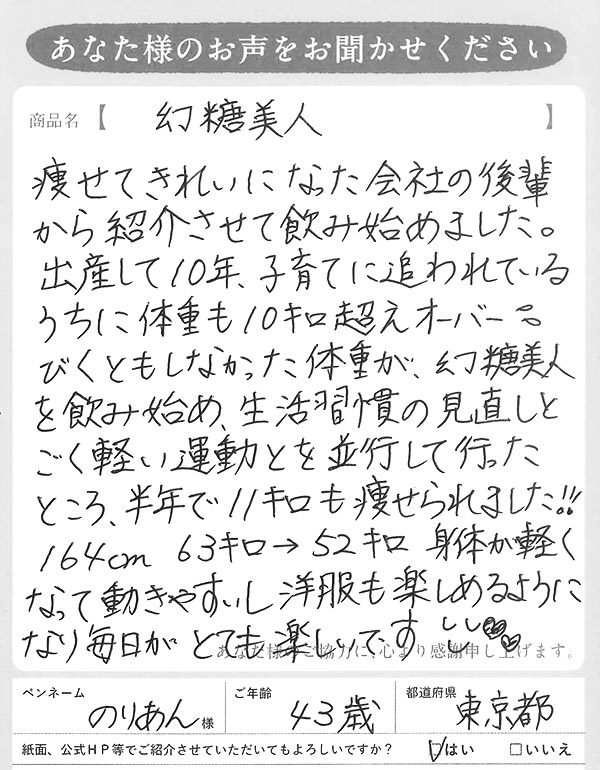 あなた様のお声をお聞かせください
商品名【 幻糖美人 】
痩せてきれいになった会社の後輩
から紹介させて飲み始めました。
出産して10年、子育てに追われている
うちに体重も10キロ超えオーバー。。
びくともしなかった体重が、幻糖美人
を飲み始め、生活習慣の見直しと
ごく軽い運動とを並行して行った
ところ、半年で11キロも痩せられました!!
164cm 63キロ→52キロ 身体が軽く
なって動きやすいし 洋服も楽しめるように
なり毎日が とても楽しいです
あなた様のご協力に、心より感謝申し上げます。
ペンネーム のりあん様 ご年齢 43歳 都道府県 東京都
紙面、公式HP等でご紹介させていただいてもよろしいですか? ☑はい □いいえ